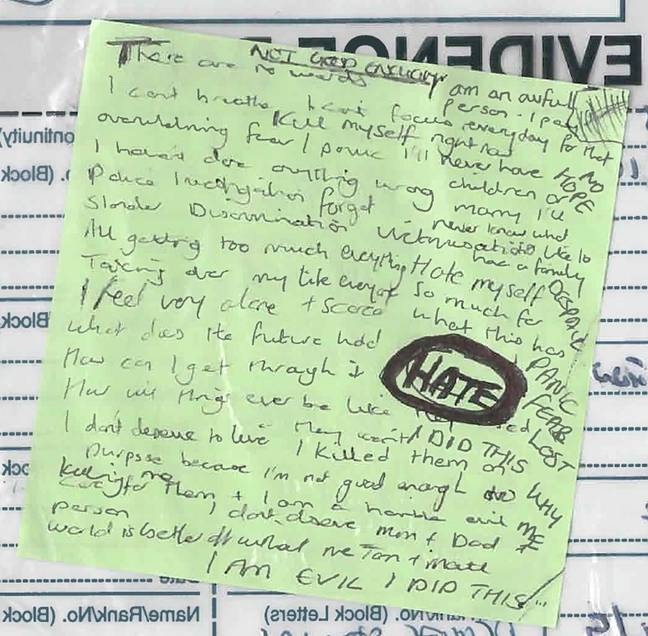 EVIDENCE
NOT GOOD ENOUGH
There are no words
I am an awful person - I pay
I can't breathe I can't focus everyday for that
Kill myself right now
overwhelming fear / panic I'll never have NO
HOPE
I haven't done anything wrong children or marry I'll
Police Investigation forget never know what
Slander Discrimination Victimisation like to have a family
All getting too much everything Hate myself DESPAIR
Taking over my life everyday so much for what this has
I feel very alone + scared
What does the future hold PANIC
How can I get through it HATE FEAR
How will things ever be like LOST
they won't I DID THIS
I don't deserve to live I killed them on WHY
purpose because I'm not good enough to ME
care for them + I am a horrible evil
person I don't deserve mum + Dad
world is better off without me
I AM EVIL I DID THIS
ontinuity)
o. (Block
Block
Date
Name/Rank/No. (Block)
(Block Letters)